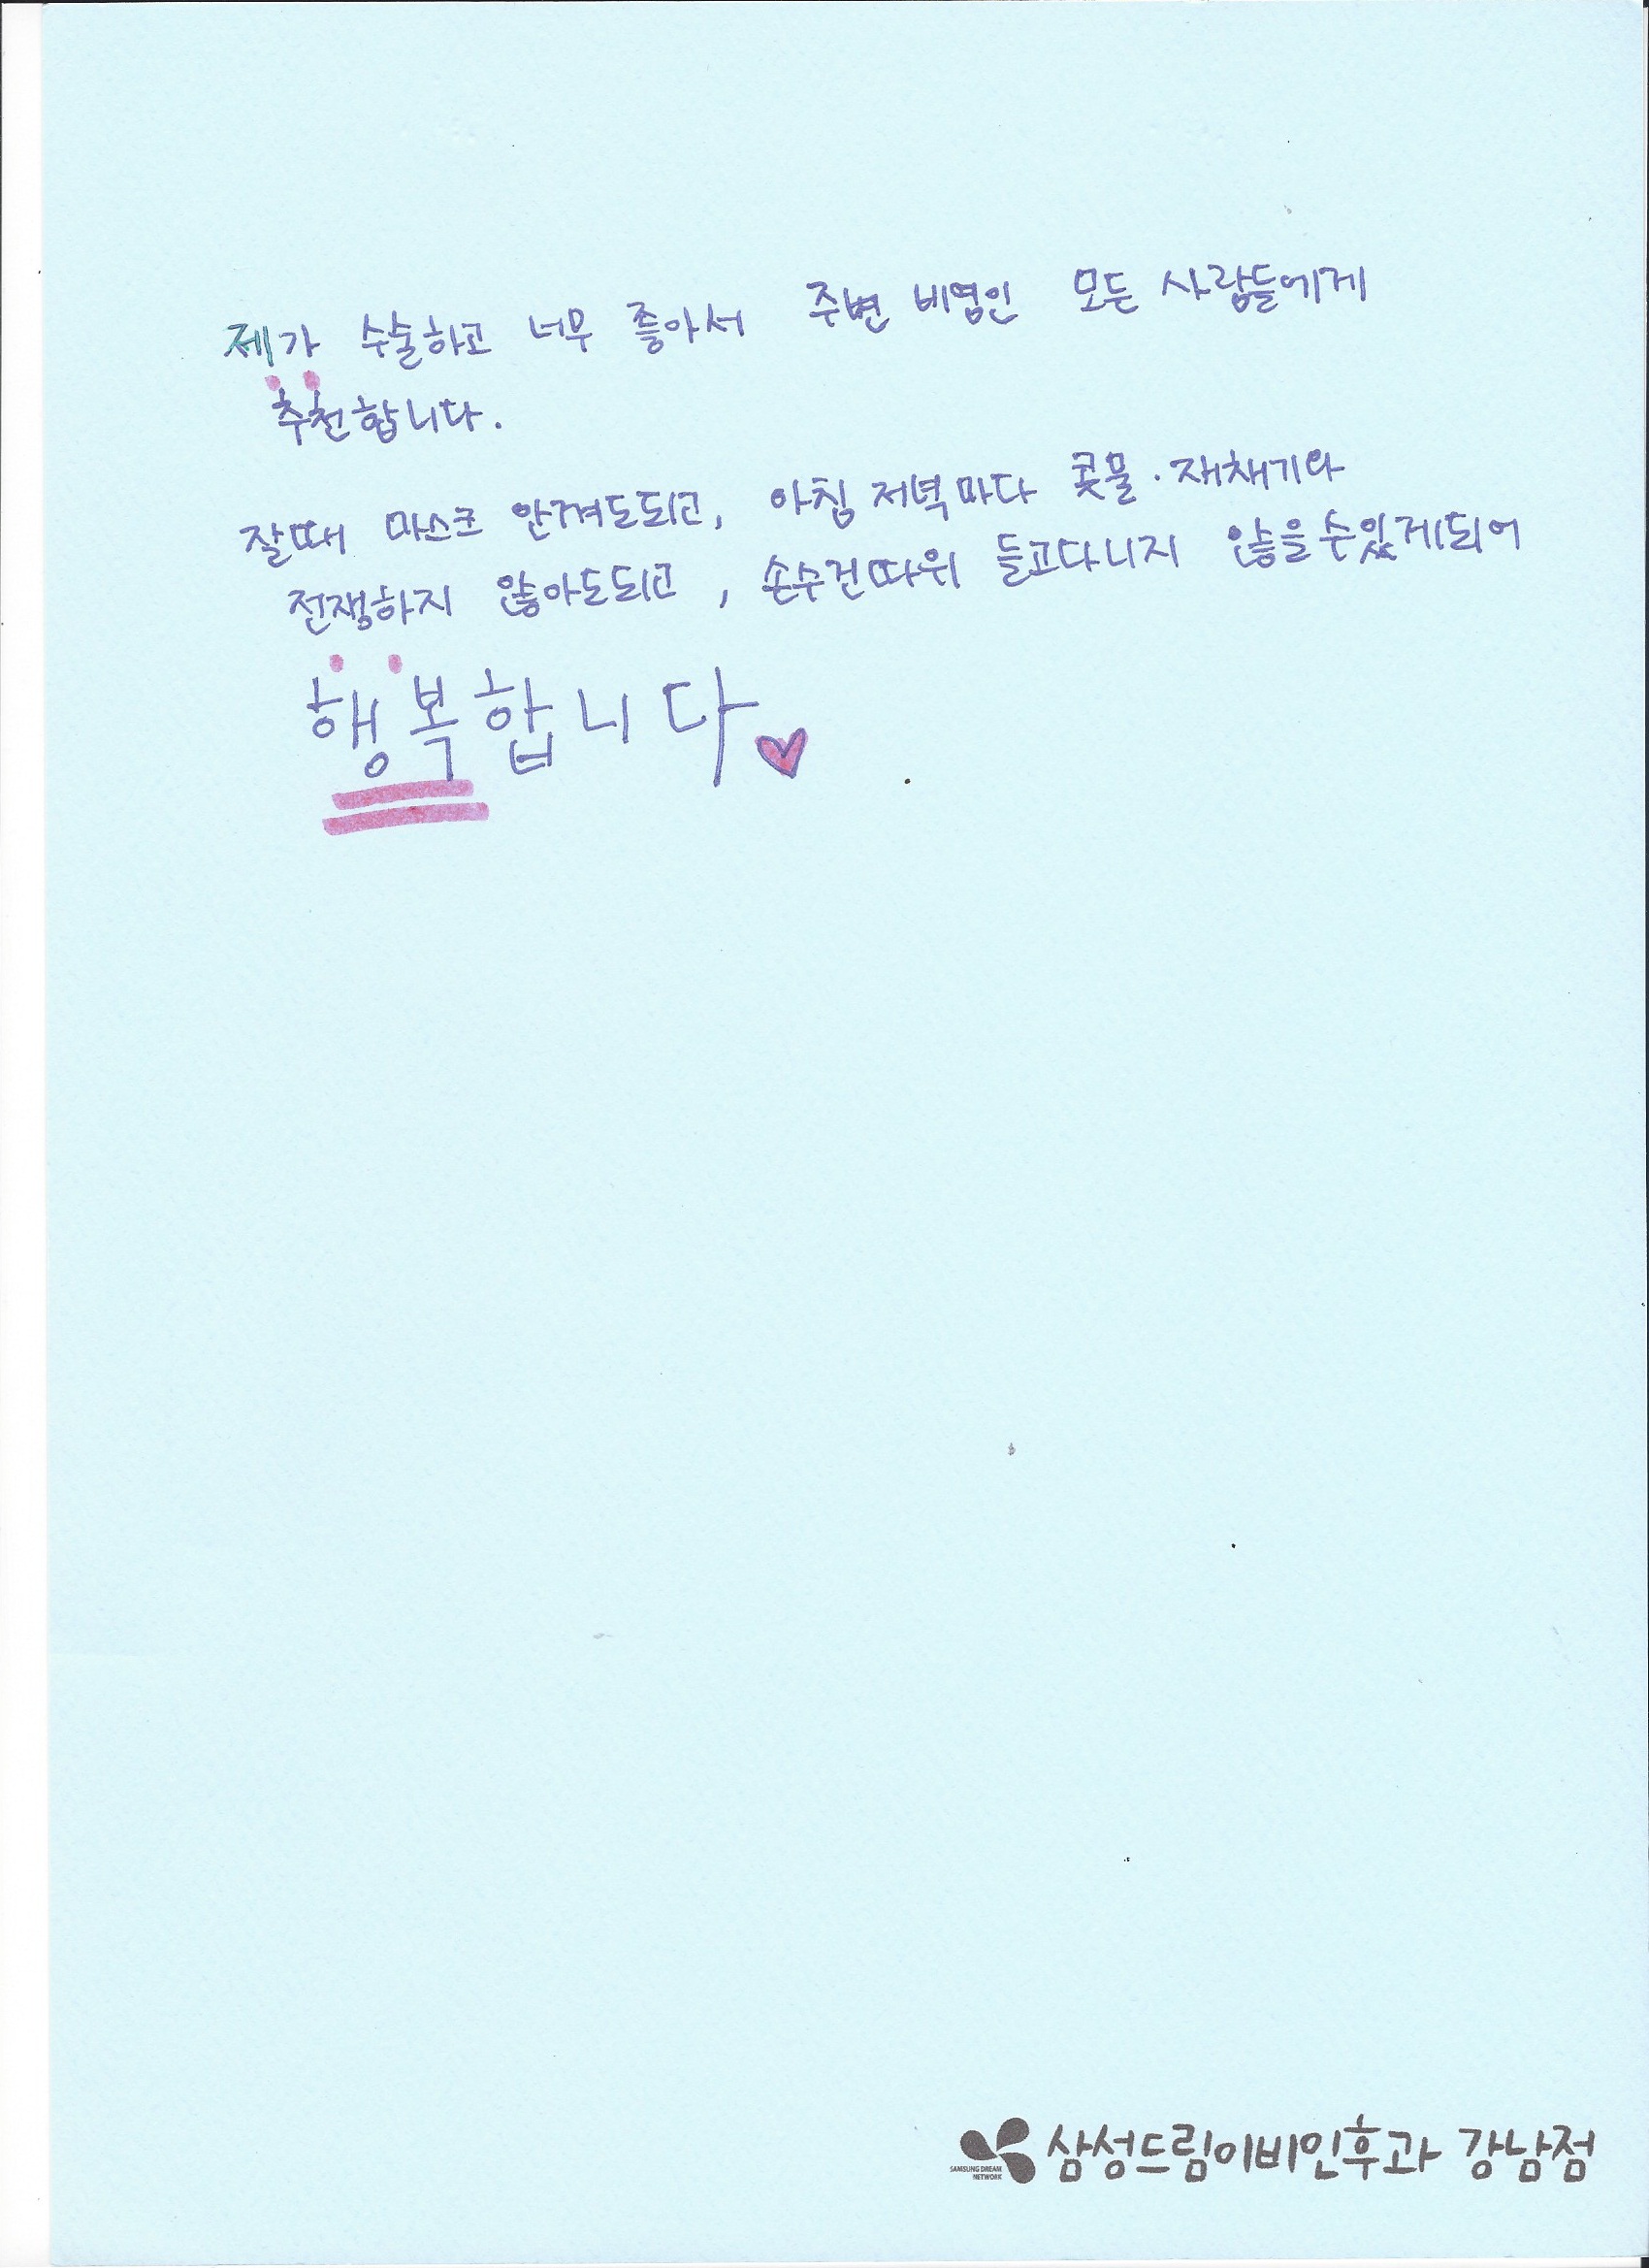 제가 수술하고 너무 좋아서 주변 비염인 모든 사람들에게
추천합니다.
잘때 마스크 안껴도되고, 아침 저녁마다 콧물·재채기와
전쟁하지 않아도되고, 손수건따위 들고다니지 않을수있게되어
행복합니다
SAMSUNG DREAM
NETWORK
삼성드림이비인후과 강남점